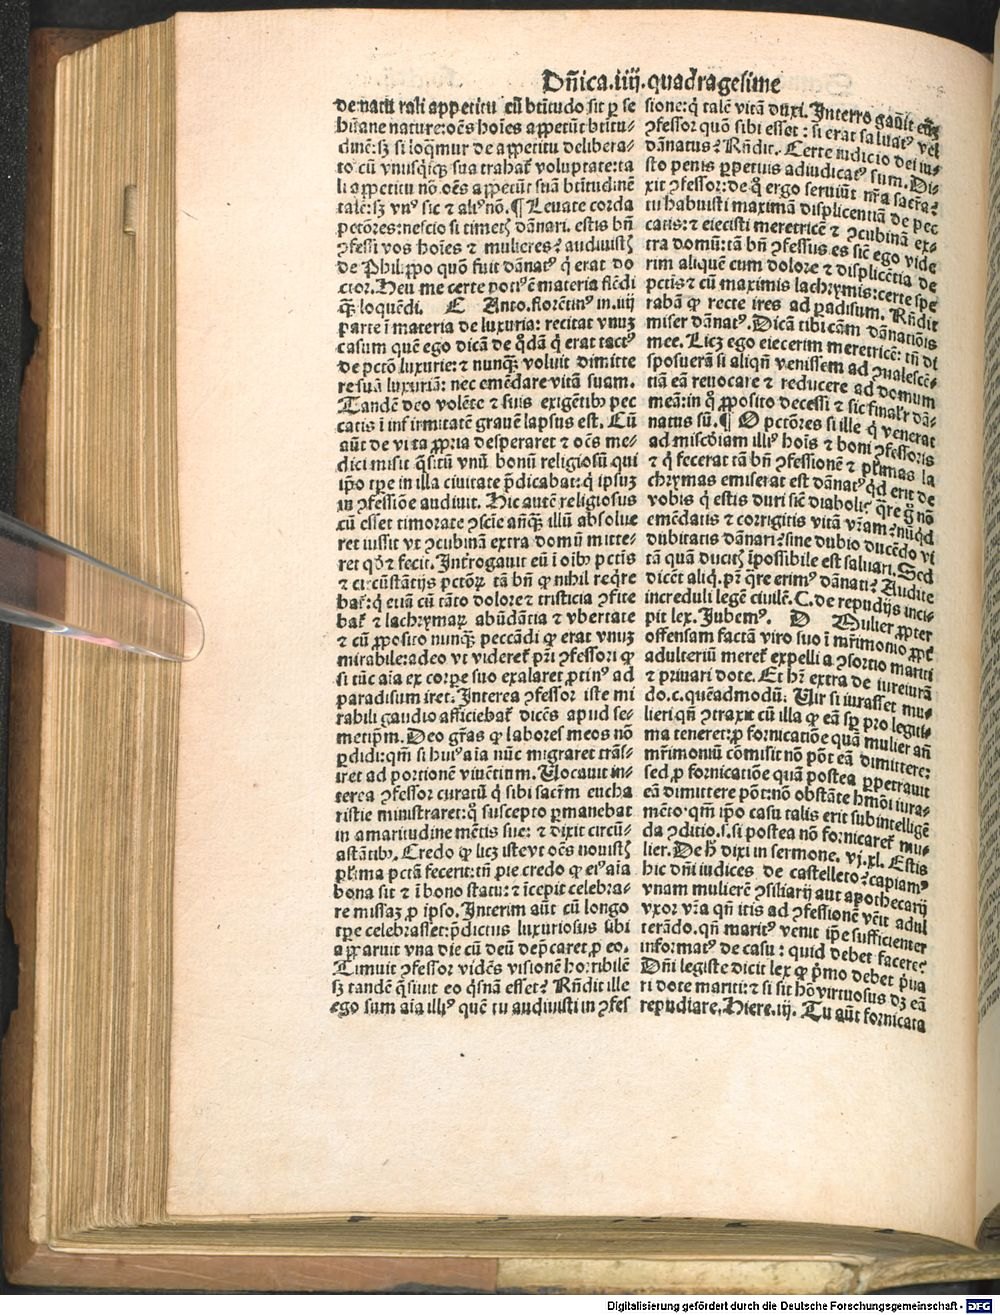 Dñica.iiij.quadragesime
de natu rali appetitu cū btitudo sit ꝑ se
hūane nature:oēs hoīes appetūt btitu-
dinē:sꝫ si loqmur de appetitu delibera-
to cū vnusqisqꝫ sua trahat voluptate:ta
li appetitu nō oēs appetūt suā btitudinē
talē:sꝫ vnꝰ sic ⁊ aliꝰ nō.¶ Leuate corda
pctōres:nescio si timetꝭ dānari. estis bn̄
ꝯfessi vos hoīes ⁊ mulieres? audiuistꝭ
de Philippo quō fuit dānatꝰ q̇ erat do
ctor.Heu me certe potiꝰ ē materia flēdi
qꝫ̄ loquēdi. C Anto.florētinꝰ in.iiij
parte ī materia de luxuria: recitat vnuꝫ
casum quē ego dicā de qdā q̇ erat tactꝰ
de pctō luxurie:⁊ nunqꝫ̄ voluit dimitte
re suā luxuriā: nec emēdare vitā suam.
Tandē deo volēte ⁊ suis exigētibꝰ pec
catis ī infirmitatē grauē lapsus est. Cū
aūt de vita ꝓpria desperaret ⁊ oēs me-
dici misit q̄sitū vnū bonū religiosū qui
ip̄o tp̄e in illa ciuitate p̄dicabat:q̇ ipsuꝫ
in ꝯfessiōe audiuit. Hic autē religiosus
cū esset timorate ꝯsciē an̄qꝫ̄ illū absolue
ret iussit vt ꝯcubinā extra domū mitte-
ret qd̓ ⁊ fecit. Int̓rogauit eū ī oībꝰ pctīs
⁊ circūstātijs pctōꝝ tā bn̄ ꝙ nihil reqre
bat̓:q̇ etiā cū tāto dolore ⁊ tristicia ꝯfite
bat̓ ⁊ lachrymaꝝ abūdātia ⁊ vbertate
⁊ cū ꝓposito nunqꝫ̄ peccādi ꝙ erat vnuꝫ
mirabile:adeo vt videret̓ pr̄i ꝯfessori ꝙ
si tūc aīa ex corpe suo exalaret ꝓtinꝰ ad
paradisum iret. Interea ꝯfessor iste mi
rabili gaudio afficiebat̓ dicēs apud se-
metip̄m. Deo grās ꝙ labores meos nō
ꝑdidi:qm̄ si huiꝰ aīa nūc migraret trās-
iret ad portionē viuētium. Vocauit in-
terea ꝯfessor curatū q̇ sibi sacrm̄ eucha
ristie ministraret:q̊ suscepto ꝑmanebat
in amaritudine mētis sue: ⁊ dixit circū-
astātibꝰ. Credo ꝙ licꝫ iste vt oēs nouistꝭ
pl̓ima pctā fecerit:tn̄ pie credo ꝙ eiꝰ aīa
bona sit ⁊ ī bono statu: ⁊ īcepit celebra-
re missaꝫ ꝓ ipso. Interim aūt cū longo
tp̄e celebrasset:p̄dictus luxuriosus sibi
apparuit vna die cū deū dep̄caret̓ ꝓ eo.
Timuit ꝯfessor vidēs visionē horribilē
sꝫ tandē q̄siuit eo q̇snā esset? Rn̄dit ille
ego sum aīa illiꝰ quē tu audiuisti in ꝯfes
sione:q̇ talē vitā duxi. Interrogauit eūꝫ
ꝯfessor quō sibi esset : si erat saluatꝰ vel
dānatus? Rn̄dit. Certe iudicio dei iu-
sto penis ꝑpetuis adiudicatꝰ sum. Di-
xit ꝯfessor:de q̊ ergo seruiūt nr̄a sacrā?
tu habuisti maximā displicentiā de pec
catis:⁊ eiecisti meretricē ⁊ ꝯcubinā ex-
tra domū:tā bn̄ ꝯfessus es sic̄ ego vide
rim aliquē cum dolore ⁊ displicētia de
pctīs ⁊ cū maximis lachrymis:certe spe
rabā ꝙ recte ires ad paradisum. Rn̄dit
miser dānatꝰ. Dicā tibi cām dānatiōis
mee. Licꝫ ego eiecerim meretricē: tn̄ di
sposuerā si aliqn̄ venissem ad ꝯualescē-
tiā eā reuocare ⁊ reducere ad domum
meā:in q̊ ꝓposito decessi ⁊ sic finalr̄ dā-
natus sū.¶ O pctōres si ille q̇ venerat
ad misc̄diam illiꝰ hoīs ⁊ boni ꝯfessoris
⁊ q̇ fecerat tā bn̄ ꝯfessionē ⁊ pl̓imas la
chrymas emiserat est dānatꝰ qd̓ erit de
vobis q̇ estis duri sic̄ diaboli? q̄re g̊ nō
emēdatis ⁊ corrigitis vitā vr̄am? nūqd
dubitatis dānari? sine dubio ducēdo vi
tā quā ducitꝭ īpossibile est saluari. Sed
dicēt aliq̇. pr̄ q̄re erimꝰ dānati? Audite
increduli legē ciuilē. C.de repudijs inci-
pit lex. Jubemꝰ. D Mulier ꝓpter
offensam factā viro suo ī mr̄imonio ꝓpt̓
adulteriū meret̓ expelli a ꝯsortio mariti
⁊ priuari dote. Et hr̄ extra de iureiurā
do.c.quēadmodū. Vir si iurasset mu-
lieri qn̄ ꝯtraxit cū illa ꝙ eā sp̄ pro legiti-
ma teneret:ꝓ fornicatiōe quā mulier an̄
mr̄imoniū cōmisit nō pōt eā dimittere:
sed ꝓ fornicatiōe quā postea ꝑpetrauit
eā dimittere pōt:nō obstāte hmōi iura-
mēto.qm̄ ip̄o casu talis erit subintelligē
da ꝯditio.s.si postea nō fornicaret̓ mu-
lier. De h̊ dixi in sermone. vj.xl. Estis
hic dn̄i iudices de castelleto? capiamꝰ
vnam mulierē ꝯsiliarij aut apothecarij
vxor vr̄a qn̄ itis ad ꝯfessionē vēit adul
terādo.qn̄ maritꝰ venit ip̄e sufficienter
informatꝰ de casu : quid debet facere?
Dn̄i legiste dicit lex ꝙ p̓mo debet p̓ua
ri dote mariti:⁊ si sit hō virtuosus dꝫ eā
repudiare. Hiere.iij. Tu aūt fornicata
Digitalisierung gefördert durch die Deutsche Forschungsgemeinschaft - DFG